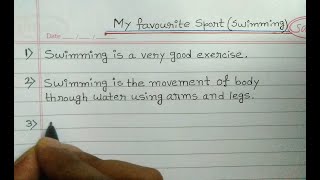 My favourite Sport (Swimming)
Date
1) Swimming is a very good exercise.
2) Swimming is the movement of body
through water using arms and legs.
3)